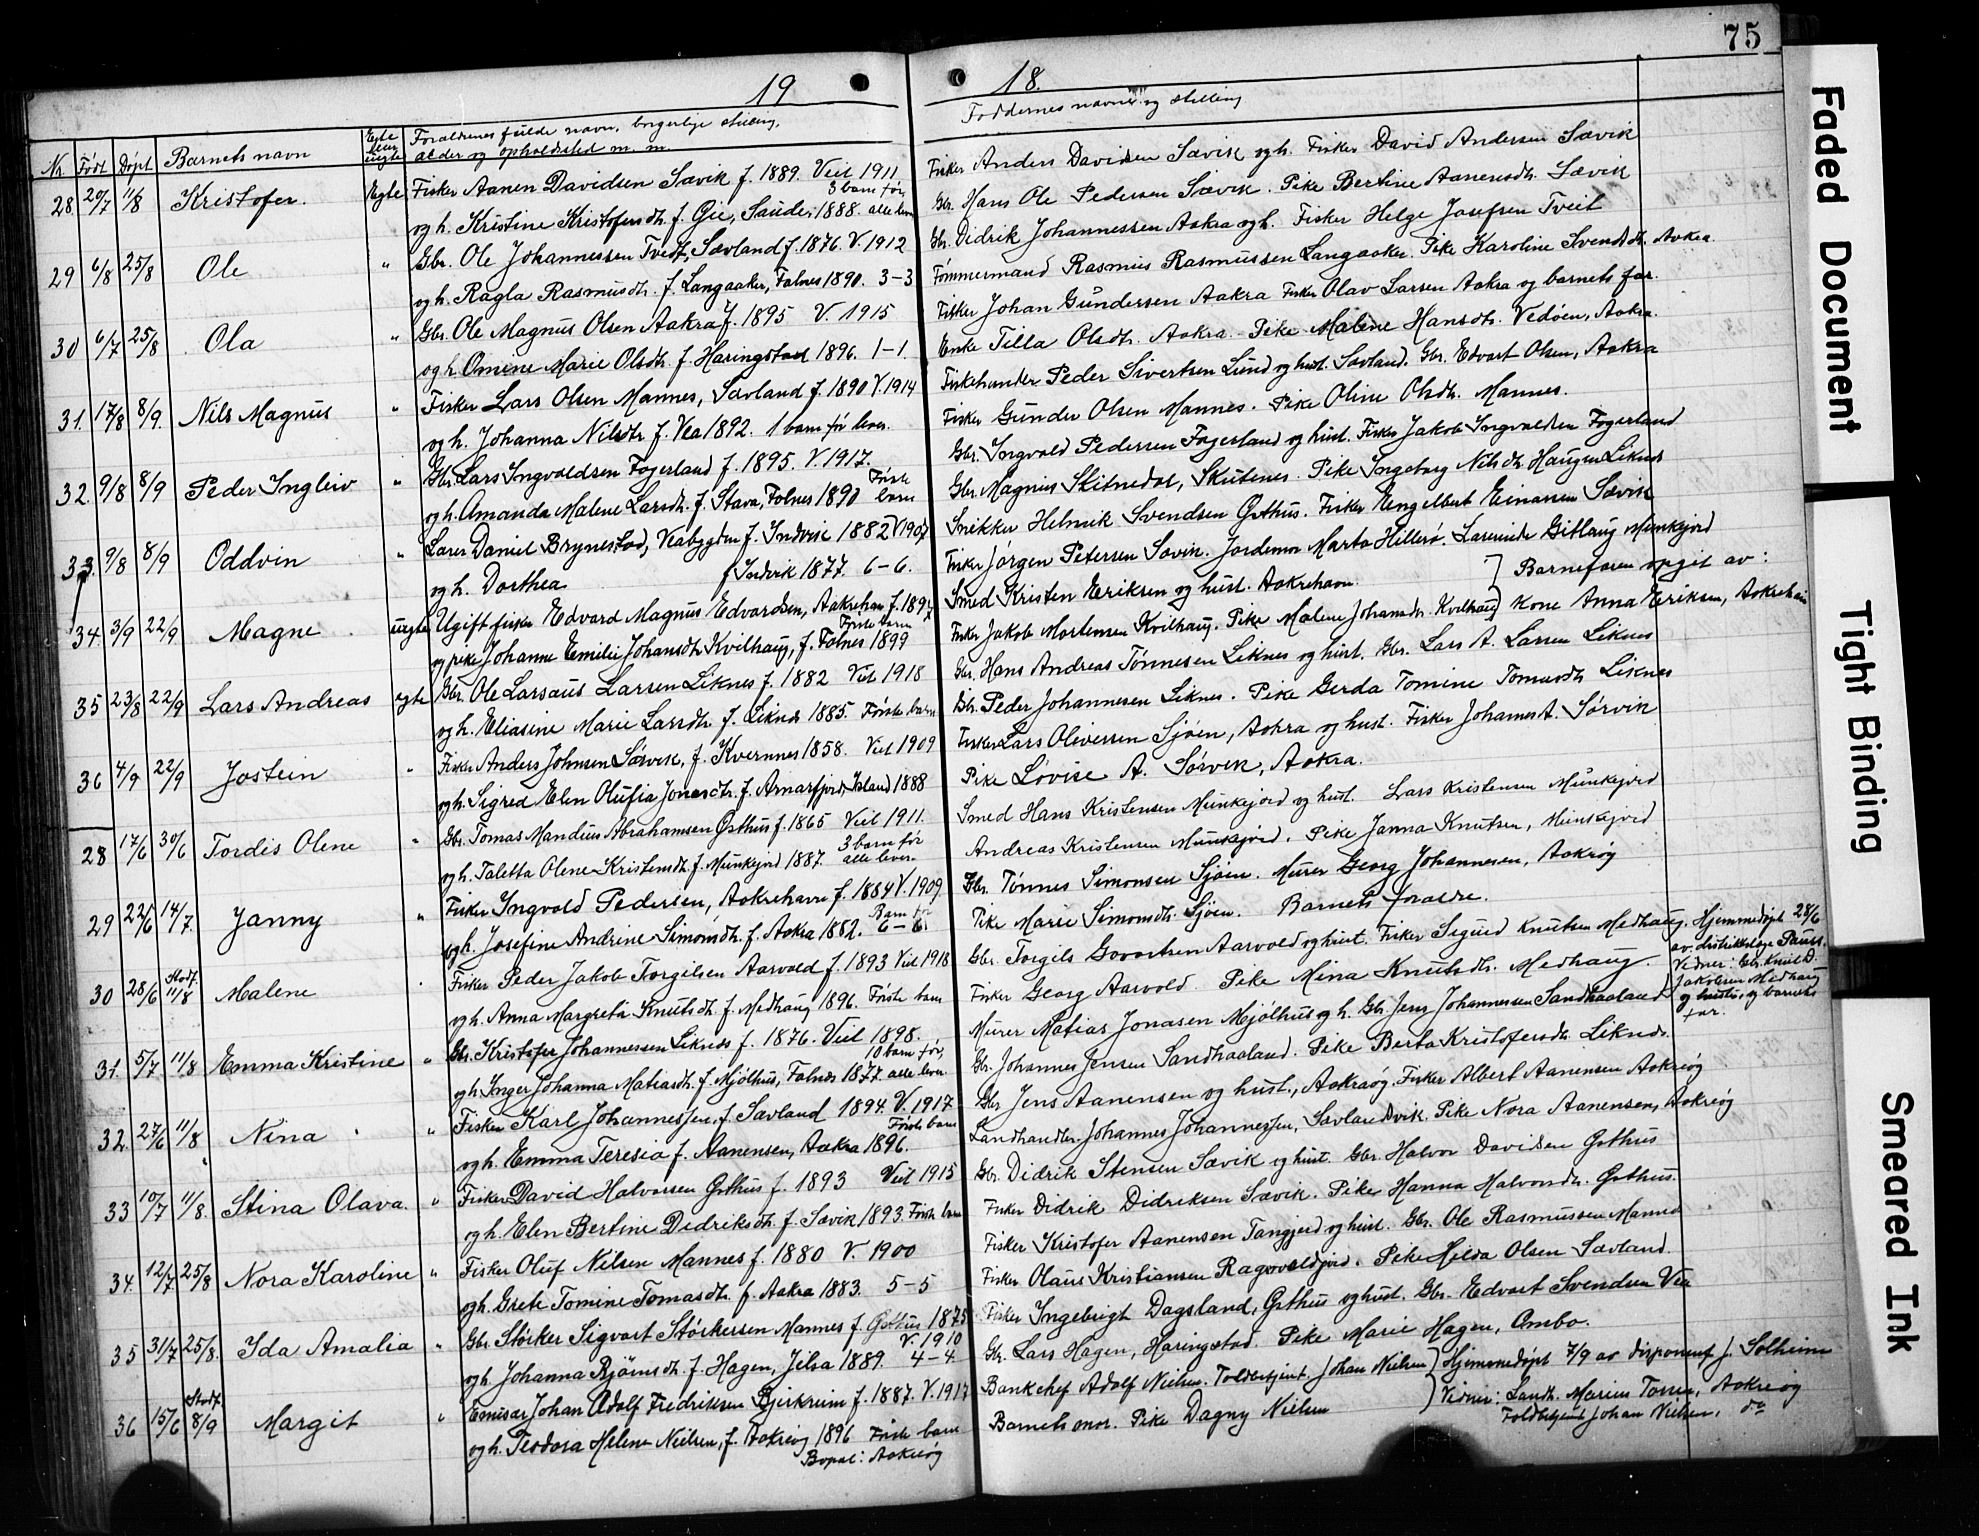 75
19 18.
Nr. Født Døpt Barnets navn Egte eller uegte Forældrenes fulde navn, borgerlige stilling, Faddernes navne og stilling
alder og opholdssted m. m.
28. 20/7 11/8 Kristofer. Egte Fisker Aanen Davidsen Sævik f. 1889. Viet 1911 Fisker Anders Davidsen Sævik og h. Fisker David Andersen Sævik
3 barn før, alle lever
og h. Kristine Kristofersdtr. f. Gie, Saude, 1888. Gbr. Hans Ole Pedersen Sævik. Pike Bertine Aanensdtr. Sævik
29 6/8 25/8 Ole " Gbr. Ole Johannessen Tveit, Sævland f. 1876. V. 1912 Gbr. Didrik Johannessen Aakra og h. Fisker Helge Josefsen Tveit
og h. Ragla Rasmusdtr. f. Langaaker, Falnes 1890. 3-3 Tømmermand Rasmus Rasmussen Langaaker. Pike Karoline Svendsdtr. Aakra.
30 6/7 25/8 Ola " Gbr. Ole Magnus Olsen Aakra f. 1895 V. 1915 Fisker Johan Gundersen Aakra Fisker Olav Larsen Aakra og barnets far.
og h. Omine Marie Olsdtr. f. Haringstad 1896. 1-1 Enke Tilla Olsdtr. Aakra. Pike Malene Hansdtr. Vedøen, Aakra.
31. 17/8 8/9. Nils Magnus " Fisker Lars Olsen Mannes, Sævland f. 1890 V. 1914 Fiskehandler Peder Sivertsen Lund og hust. Sævland. Gbr. Edvart Olsen, Aakra
og h. Johanna Nilsdtr. f. Vea 1892. 1 barn før lever. Fisker Gunder Olsen Mannes. Pike Oline Olsdtr. Mannes.
32. 9/8 8/9 Peder Ingleiv " Gbr. Lars Ingvaldsen Fagerland f. 1895. V. 1917. Gbr. Ingvald Pedersen Fagerland og hust. Fisker Jakob Ingvaldsen Fagerland
og h. Amanda Malene Larsdtr. f. Stava, Falnes 1890 Første barn Gbr. Magnus Skitnedal, Skutenes. Pike Ingeborg Nilsdtr. Haugen Liknes
33. 9/8 8/9 Oddvin " Lærer Daniel Brynestad, Veabygden f. Indvik 1882 V 1907 Snikker Helmik Svendsen Østhus. Fisker Engelbert Einarsen Sævik
og h. Dorthea f. Indvik 1877. 6-6. Fisker Jørgen Petersen Sævik. Jordemor Marta Hillerø. Lærerinde Gitlaug Munkejord
34. 3/9 22/9 Magne uegte Ugift fisker Edvard Magnus Edvardsen, Aakrehavn f. 1897 Smed Kristen Eriksen og hust. Aakrehavn. Barnefaren opgit av:
Første barn
og pike Johanne Emilie Johansdtr. Kvilhaug, f. Falnes 1899 Fisker Jakob Mortensen Kvilhaug. Pike Malene Johansdtr. Kvilhaug Kone Anna Eriksen, Aakrehavn
35 23/8 22/9 Lars Andreas egte Gbr. Ole Larsaus Larsen Liknes f. 1882 Viet 1918 Gbr. Hans Andreas Tønnesen Liknes og hust. Gbr. Lars A. Larsen Liknes
og h. Eliasine Marie Larsdtr. f. Liknes 1885. Første barn Gbr. Peder Johannesen Liknes. Pike Gerda Tomine Tomasdtr. Liknes
36 4/9 22/9 Jostein " Fisker Anders Johnsen Sørvik, f. Kvernnes 1858. Viet 1909 Fisker Lars Oliversen Sjøen, Aakra og hust. Fisker Johannes A. Sørvik
og h. Sigred Elen Olufia Jonasdtr. f. Arnarfjord, Island 1888 Pike Lovise A. Sørvik, Aakra.
28 17/6 30/6 Tordis Olene " Gbr. Tomas Mandius Abrahamsen Østhus f. 1865 Viet 1911. Smed Hans Kristensen Munkejord og hust. Lars Kristensen Munkejord
3 barn før alle lever.
og h. Taletta Olene Kristensdtr. f. Munkejord 1887. Andreas Kristensen Munkejord. Pike Janna Knutsen, Munkejord
29 22/6 14/7. Janny " Fisker Ingvald Pedersen, Aakrehavn f. 1884 V. 1909. Gbr. Tønnes Simonsen Sjøen. Murer Georg Johannesen, Aakrøy
og h. Josefine Andrine Simonsdtr. f. Aakra 1882. Barn før 6-6 Pike Marie Simonsdtr. Sjøen. Barnets forældre.
30 28/6 Stadf. 11/8 Malene Fisker Peder Jakob Torgilsen Aarvold f. 1893 Viet 1918 Gbr. Torgils Govartsen Aarvold og hust. Fisker Sigurd Knutsen Medhaug. Hjemmedøpt 28/6
av distriktslæge Pauss.
og h. Anna Margreta Knutsdtr. f. Medhaug 1896. Første barn Fisker Georg Aarvold. Pike Mina Knutsdtr. Medhaug. Vidner: Gbr. Knut D.
Jakobsen Medhaug
og hustru, og barnets
far.
31. 5/7 11/8 Emma Kristine " Gbr. Kristofer Johannessen Liknes f. 1876. Viet 1898. Murer Matias Jonasen Mjølhus og h. Gbr. Jens Johannessen Sandhaaland
10 barn før,
og h. Inger Johanna Matiasdtr. f. Mjølhus, Falnes 1877. alle lever Gbr. Johannes Jensen Sandhaaland. Pike Berta Kristofersdtr. Liknes.
32. 27/6 11/8 Nina " Fisker Karl Johannessen, f. Sævland 1894. V. 1917 Gbr. Jens Aanensen og hust., Aakraøy. Fisker Albert Aanensen Aakrøy
Første barn
og h. Emma Teresia f. Aanensen, Aakra 1896. Landhandler Johannes Johannessen, Sævlandvik. Pike Nora Aanensen, Aakrøy
33 10/7 11/8. Stina Olava. " Fisker David Halvorsen Østhus f. 1893 Viet 1915 Gbr. Didrik Stensen Sævik og hust. Gbr. Halvor Davidsen Østhus
og h. Elen Bertine Didriksdtr. f. Sævik 1893. Første barn Fisker Didrik Didriksen Sævik. Pike Hanna Halvorsdtr. Østhus.
34. 12/7 25/8 Nora Karoline " Fisker Oluf Nilsen Mannes f. 1880 V. 1900 Fisker Kristofer Aanensen Tangjerd og hust. Gbr. Ole Rasmussen Mannes
og h. Grete Tomine Tomasdtr. f. Aakra 1883. 5-5 Fisker Olaus Kristiansen Ragnvaldjord. Pike Hilda Olsen Sævland.
35 31/7 25/8. Ida Amalia " Gbr. Størker Sigvart Størkersen Mannes f. Østhus 1875 Fisker Ingebrigt Dagsland, Østhus og hust. Gbr. Edvart Svendsen Vea
V. 1910
og h. Johanna Bjørnsdtr. f. Hagen, Jelsa 1889. 4-4. Gbr. Lars Hagen, Haringstad. Pike Marie Hagen, Ombo.
36 15/6 Stadf. 8/9 Margit " Emisær Johan Adolf Fredriksen Bjerkreim f. 1887. V. 1917 Bankchef Adolf Nielsen. Toldbetjent Johan Nielsen Hjemmedøpt 7/9 av disponent J. Solheim
og h. Teodora Helene Nielsen, f. Aakrøy 1896 Første barn Barnets mor. Pike Dagny Nielsen Vidner: Landh. Marius Tonn, Aakrøy
Bopæl: Aakrøy Toldbetjent Johan Nielsen, do
Faded Document
Tight Binding
Smeared Ink